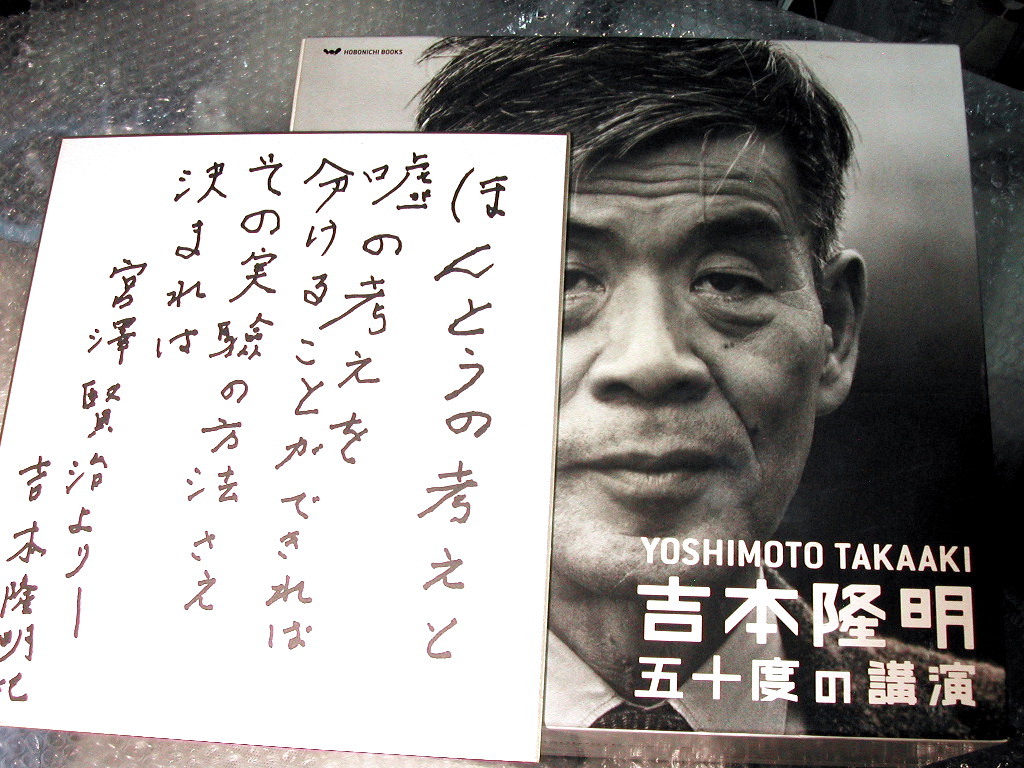 HOBONICHI BOOKS
ほんとうの考えと
嘘の考えを
分けることができれば
その実験の方法さえ
決まれば
宮澤賢治より―
吉本隆明記
YOSHIMOTO TAKAAKI
吉本隆明
五十度の講演